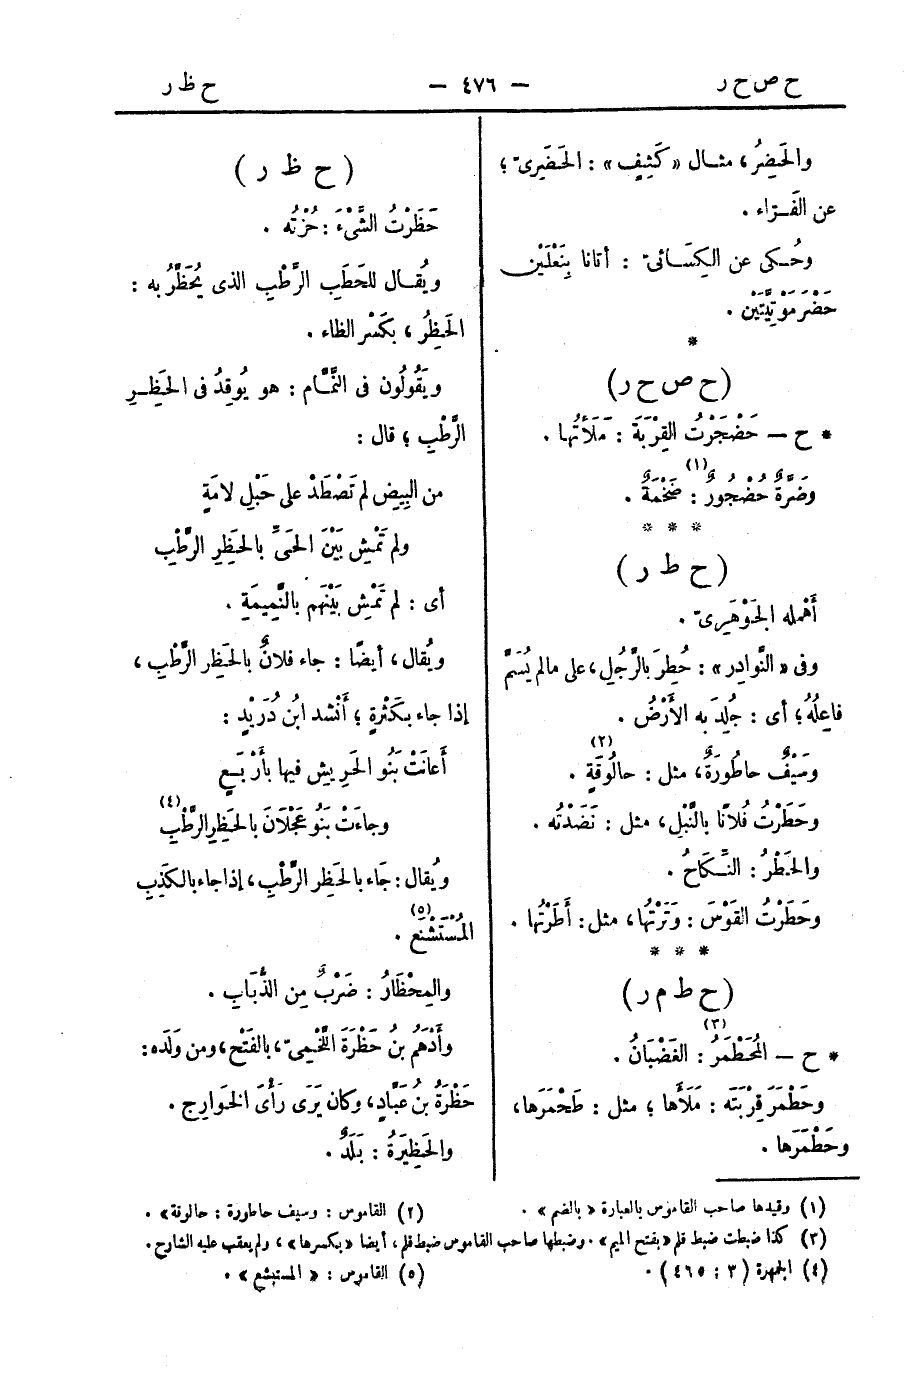 ح ص ح ر
— ٤٧٦ —
ح ظ ر
والحَضِرُ، مثال «كَثِيفٍ» : الحَضَيرِىّ ؛
عن الفَرّاء .
وحُكى عن الكِسَائىّ : أتانا بِنَعْلَيْن
حَضْرَمَوْتِيَّتَيْن .
*
( ح ص ح ر )
* ح – حَضْجَرْتُ القِرْبَةَ : مَلَأْتُها .
وضَرَّةٌ حُضْجُورٌ (١) : ضَخْمَةٌ .
* * *
( ح ط ر )
أَهْمله الجَوْهَرِىّ .
وفى «النَّوادِر» : حُطِرَ بالرَّجُلِ، على ما لم يُسَمَّ
فاعِلُهُ؛ أى : جُلِدَ به الأَرْضُ .
وسَيْفٌ حاطُورَةٌ، مثل : حالُوقَةٍ (٢) .
وحَطَرْتُ فُلانًا بالنَّبْلِ، مثل : نَضَدْتُه .
والحَطْرُ : النِّكَاحُ .
وحَطَرْتُ القَوْسَ : وَتَرْتُها، مثل: أَطَرْتُها .
* * *
( ح ط م ر )
* ح – المُحَطْمَرُ (٣) : الغَضْبَانُ .
وحَطْمَرَ قِرْبَتَه : مَلَأَها ؛ مثل : طَحْمَرَها،
وحَطْمَرَها .
( ح ظ ر )
حَظَرْتُ الشَّىْءَ : حُزْتُه .
ويُقال للحَطَبِ الرَّطْبِ الذى يُحَظَّرُ به :
الحَظِرُ ، بكَسْر الظاء .
ويَقُولُون فى النَّمَّام : هو يُوقِدُ فى الحَظِرِ
الرَّطْبِ ؛ قال :
من البِيضِ لم تَصْطَدْ على حَبْلِ لامَةٍ
ولم تَمْشِ بَيْنَ الحَىِّ بالحَظِرِ الرَّطْبِ
أى : لم تَمْشِ بَيْنَهم بالنَّمِيمَةِ .
ويُقال ، أيضًا : جاء فلانٌ بالحَظِر الرَّطْبِ ،
إذا جاء بكَثْرةٍ ؛ أَنْشد ابنُ دُرَيْدٍ :
أَعانَتْ بَنُو الحَرِيشِ فيها بأَرْبَعٍ
وجاءَتْ بَنُو عَجْلَانَ بالحَظِرِ الرَّطْبِ (٤)
ويُقال : جَاء بالحَظِر الرَّطْبِ ، إذا جاء بالكَذِبِ
المُسْتَشْنَعِ (٥) .
والمِحْظَارُ : ضَرْبٌ مِن الذُّبَابِ .
وأَدْهَمُ بنُ حَظْرَةَ اللَّخْمِىّ ، بالفَتْح ، ومن وَلَدَه :
حَظْرَةُ بنُ عَبَّادٍ، وكان يَرَى رَأْىَ الخَوارِج .
والحَظِيرَةُ : بَلَدٌ .
(١) وقيدها صاحب القاموس بالعبارة « بالضم » .
(٢) القاموس : وسيف حاطورة : حالوقة» .
(٣) كذا ضبطت ضبط قلم «بفتح الميم» . وضبطها صاحب القاموس ضبط قلم ، أيضا «بكسرها» ، ولم يعقب عليه الشارح .
(٤) الجمهرة (٣ : ٤٦٥) .
(٥) القاموس : « المستبشع » .